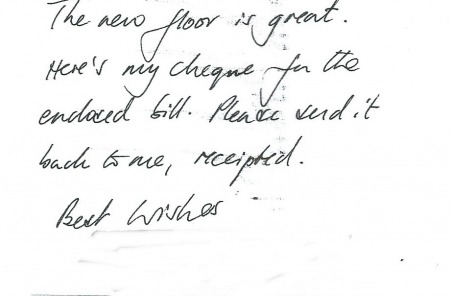 The new floor is great.
Here's my cheque for the
enclosed bill. Please send it
back to me, receipted.
Best Wishes